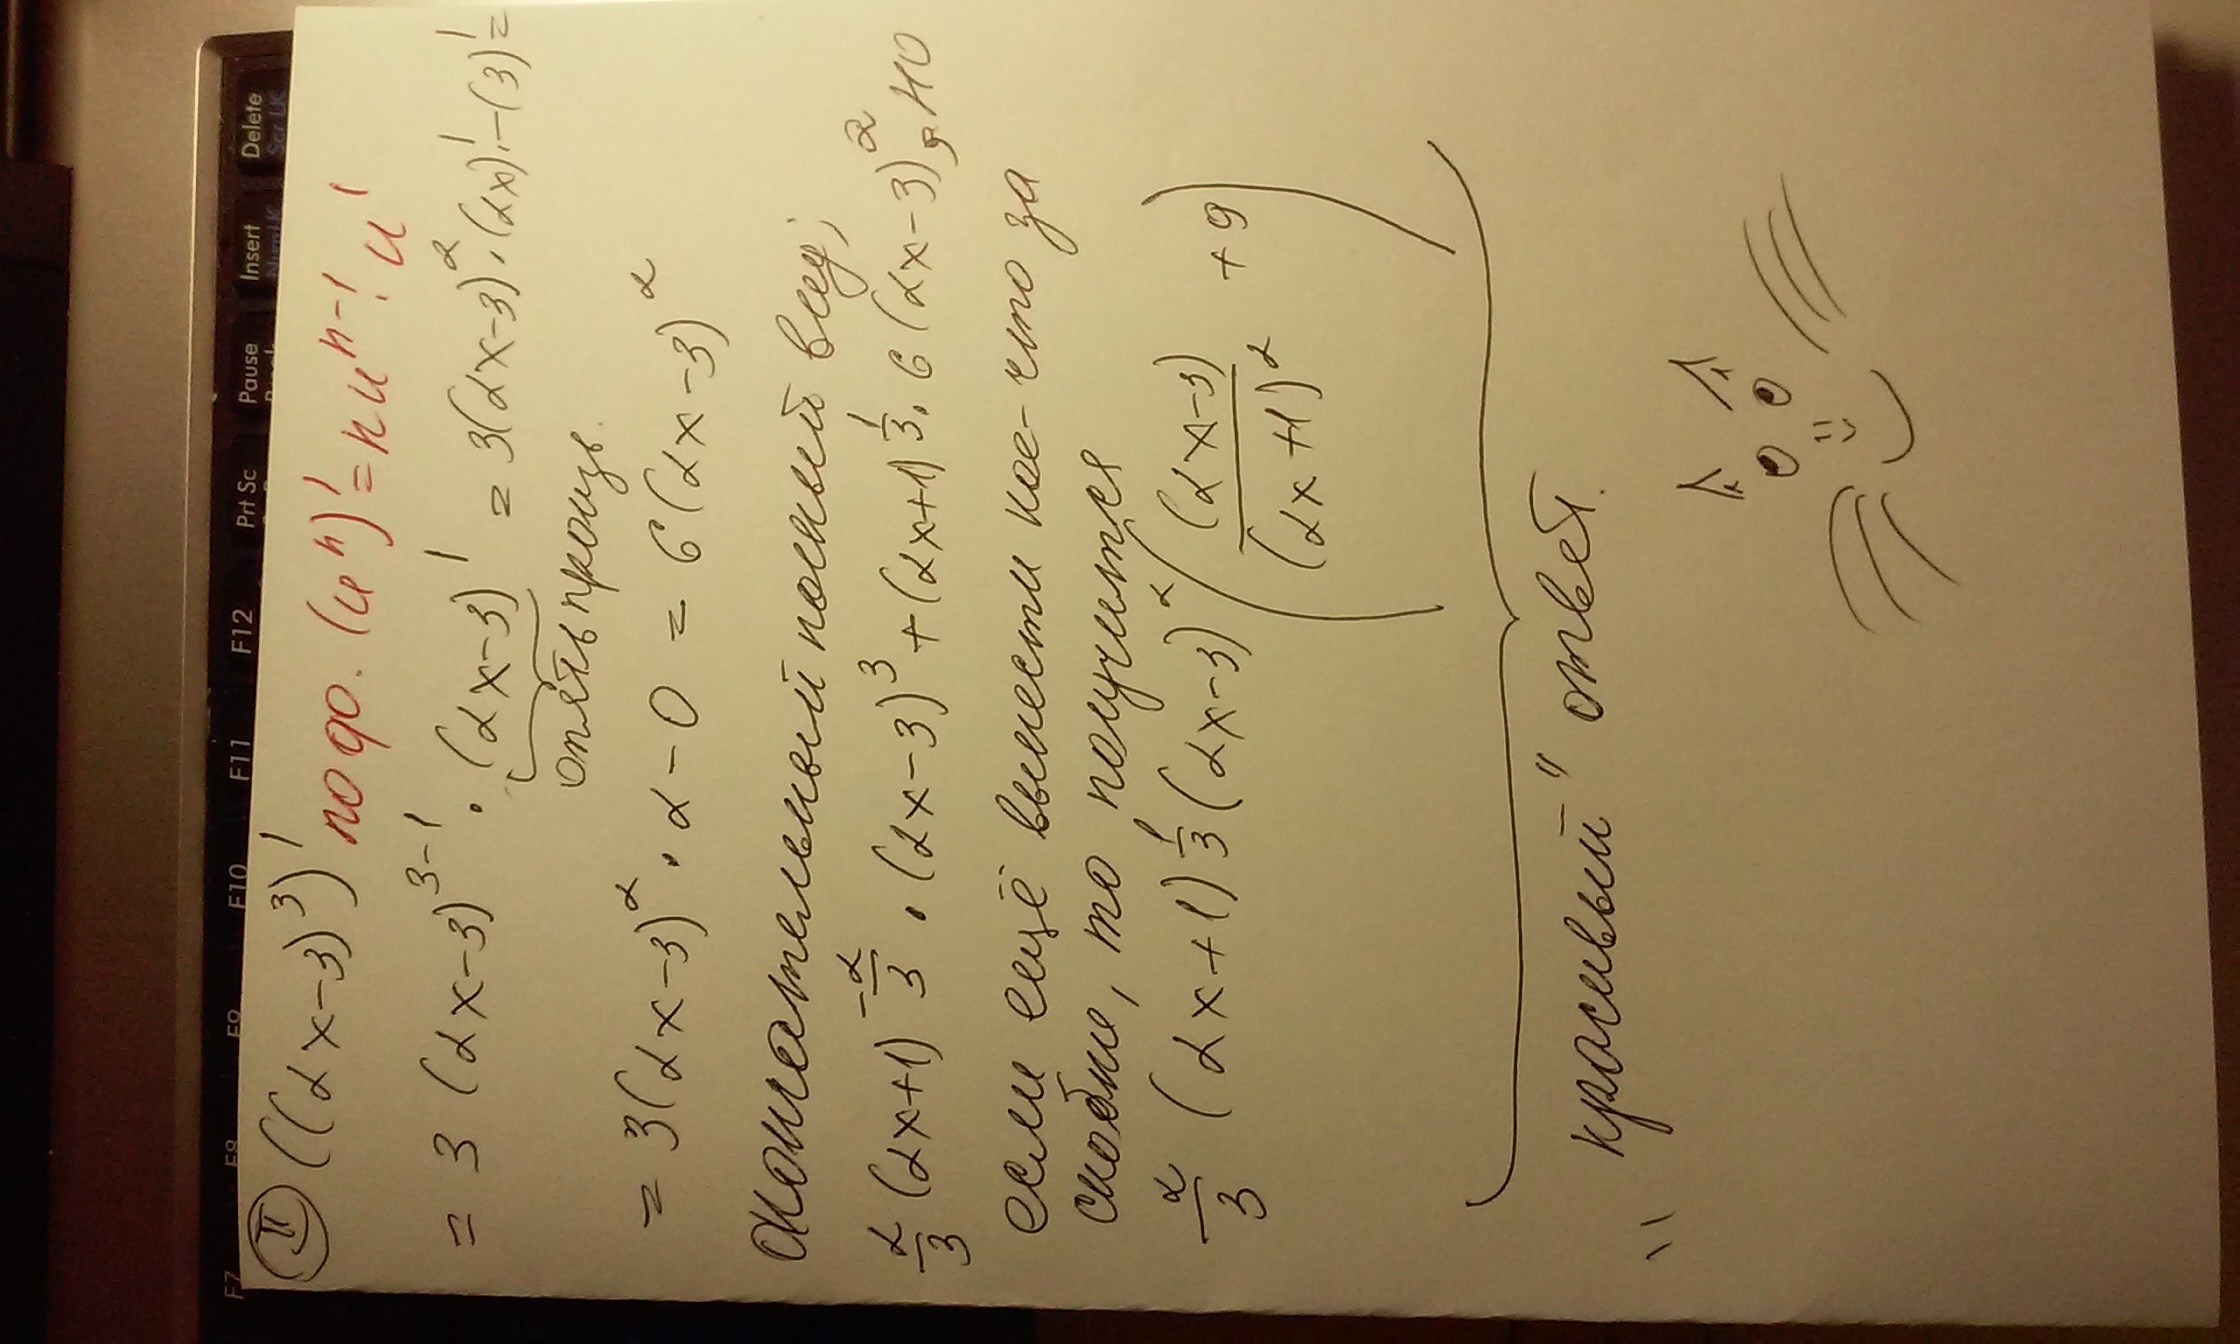 F7 F8 F9 F10 F11 F12 Prt Sc Pause Insert Delete
NumLK Scr LK
II ((2x-3)³)' по ф. (uⁿ)' = nuⁿ⁻¹·u'
= 3(2x-3)³⁻¹·(2x-3)' = 3(2x-3)²·(2x)'-(3)'=
опять произв.
= 3(2x-3)²·2-0 = 6(2x-3)²
окончательный полный вид:
2/3(2x+1)^(-2/3)·(2x-3)³+(2x+1)^(1/3)·6(2x-3)², но
если ещё вынести кое-что за
скобки, то получится
2/3(2x+1)^(1/3)(2x-3)²((2x-3)/(2x+1)²+9)
"красивый" ответ.